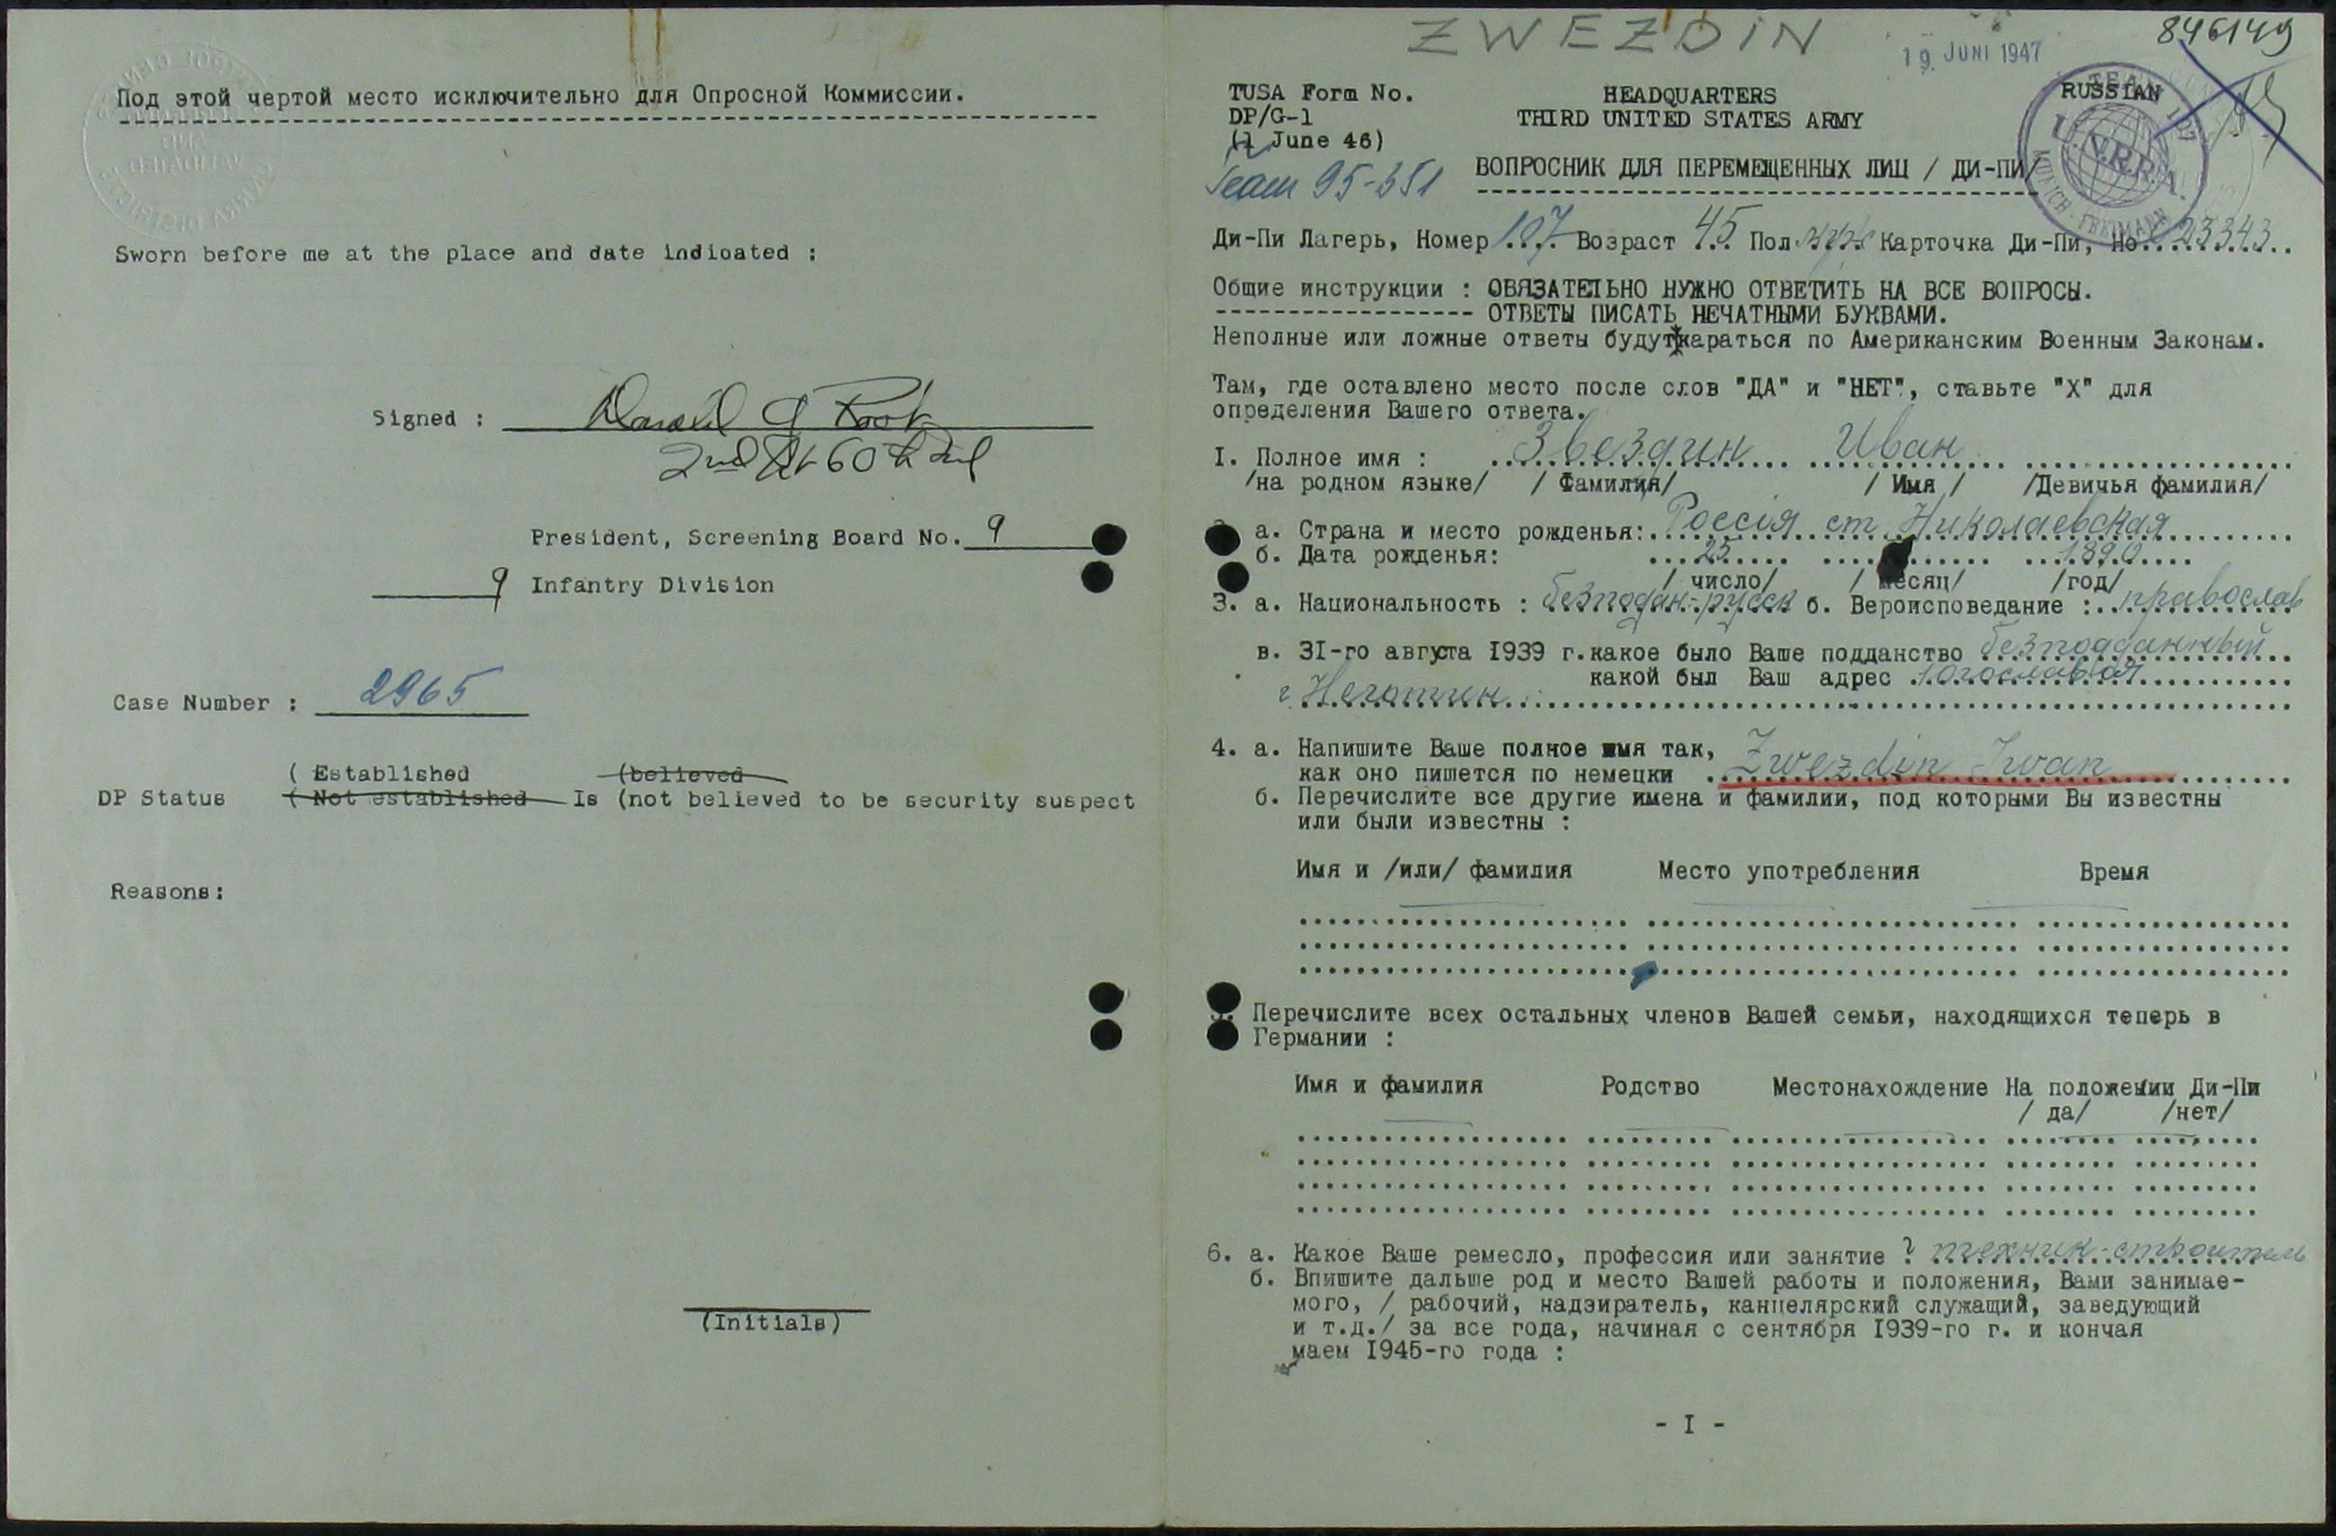 Под этой чертой место исключительно для Опросной Коммиссии.
Sworn before me at the place and date indicated :
Signed :
2nd Lt 60th Inf
President, Screening Board No. 9
9 Infantry Division
Case Number : 2965
( Established (believed
DP Status ( Not established Is (not believed to be security suspect
Reasons:
(Initials)
ZWEZDIN
19. JUNI 1947
846149
TUSA Form No. HEADQUARTERS RUSSIAN
DP/G-1 THIRD UNITED STATES ARMY
(1 June 46)
Team 95-351
ВОПРОСНИК ДЛЯ ПЕРЕМЕЩЕННЫХ ЛИЦ / ДИ-ПИ/
TEAM 107
U.N.R.R.A.
MUNICH-FREIMANN
Ди-Пи Лагерь, Номер 107 Возраст 45 Пол муж Карточка Ди-Пи, Но. 123343
Общие инструкции : ОБЯЗАТЕЛЬНО НУЖНО ОТВЕТИТЬ НА ВСЕ ВОПРОСЫ.
ОТВЕТЫ ПИСАТЬ НЕЧАТНЫМИ БУКВАМИ.
Неполные или ложные ответы будут караться по Американским Военным Законам.
Там, где оставлено место после слов "ДА" и "НЕТ", ставьте "Х" для
определения Вашего ответа.
I. Полное имя : Звездин Иван
/на родном языке/ / Фамилия/ / Имя / /Девичья фамилия/
а. Страна и место рожденья: Россія ст. Николаевская
б. Дата рожденья: 25 1890
/ число/ / месяц/ /год/
3. а. Национальность : безподан-русск б. Вероисповедание : православ
в. 31-го августа 1939 г.какое было Ваше подданство безподданный
какой был Ваш адрес Югославия
г. Неготин
4. а. Напишите Ваше полное имя так,
как оно пишется по немецки Zwezdin Iwan
б. Перечислите все другие имена и фамилии, под которыми Вы известны
или были известны :
Имя и /или/ фамилия Место употребления Время
Перечислите всех остальных членов Вашей семьи, находящихся теперь в
Германии :
Имя и фамилия Родство Местонахождение На положении Ди-Пи
/ да/ /нет/
6. а. Какое Ваше ремесло, профессия или занятие ? техник-строитель
б. Впишите дальше род и место Вашей работы и положения, Вами занимае-
мого, / рабочий, надзиратель, канцелярский служащий, заведующий
и т.д./ за все года, начиная с сентября 1939-го г. и кончая
маем 1945-го года :
- I -